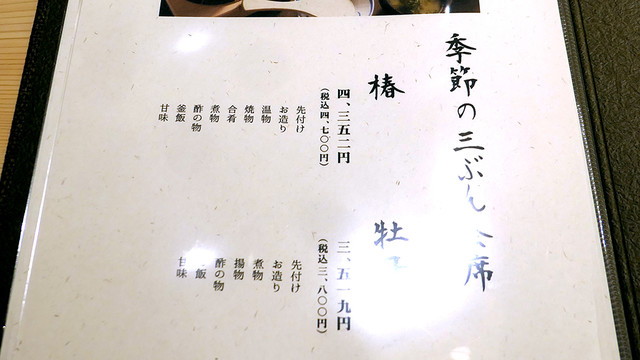 季節の三ぶん 席
椿
四、三五二円
(税込四、七〇〇円)
先付け
お造り
温物
焼物
合肴
煮物
酢の物
釜飯
甘味
牡
三、五一九円
(税込三、八〇〇円)
先付け
お造り
煮物
揚物
酢の物
飯
甘味